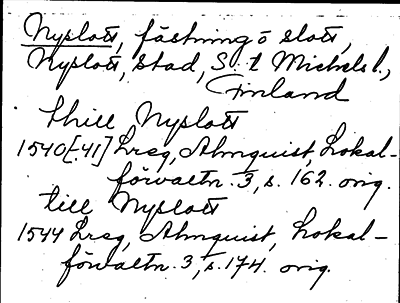 Nyslott, fästning o slott,
Nyslott, stad, S:t Michels l.,
Finland
thill Nyslott
1540[-41] Lrsg, Almquist, Lokal-
förvaltn. 3, s. 162. orig.
till Nyslott
1544 Lrsg, Almquist, Lokal-
förvaltn. 3, s. 174. orig.